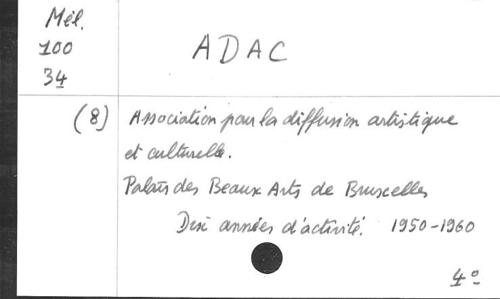 Mél.
100
34
ADAC
(8) Association pour la diffusion artistique
et culturelle.
Palais des Beaux Arts de Bruxelles
Dix années d'activité. 1950-1960
4º